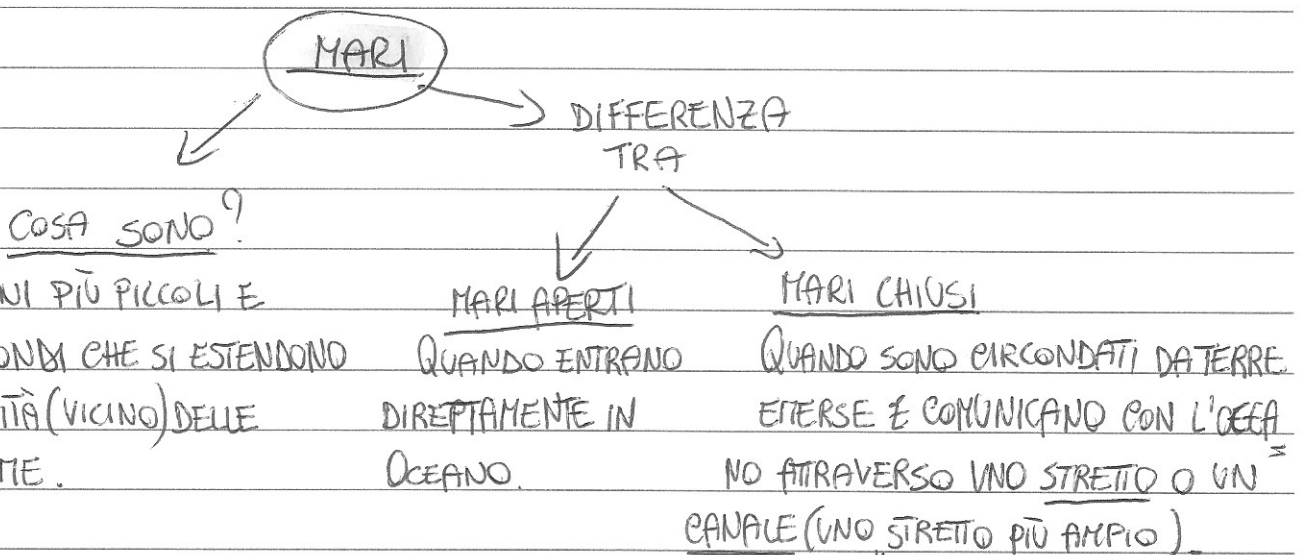 MARI
DIFFERENZA
TRA
COSA SONO?
NI PIÙ PICCOLI E
ONDI CHE SI ESTENDONO
ITÀ (VICINO) DELLE
ME.
MARI APERTI
QUANDO ENTRANO
DIRETTAMENTE IN
OCEANO.
MARI CHIUSI
QUANDO SONO CIRCONDATI DA TERRE
EMERSE E COMUNICANO CON L'OCEA=
NO ATTRAVERSO UNO STRETTO O UN
CANALE (UNO STRETTO PIÙ AMPIO).